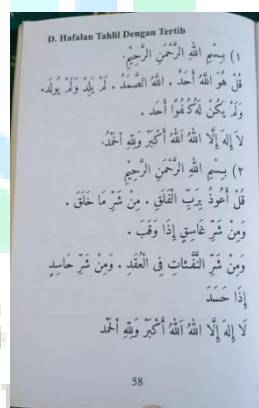 D. Hafalan Tahlil Dengan Tertib
١) بِسْمِ اللهِ الرَّحْمٰنِ الرَّحِيْمِ.
قُلْ هُوَ اللهُ أَحَدٌ . اَللهُ الصَّمَدُ . لَمْ يَلِدْ وَلَمْ يُولَدْ.
وَلَمْ يَكُنْ لَهُ كُفُوًا أَحَد .
لاَ إِلهَ إِلَّا اللهُ اَللهُ أَكْبَرْ وَلِلّٰهِ الْحَمْدُ.
٢) بِسْمِ اللهِ الرَّحْمٰنِ الرَّحِيْمِ
قُلْ أَعُوْذُ بِرَبِّ الْفَلَقِ . مِنْ شَرِّ مَا خَلَقَ .
وَمِنْ شَرِّ غَاسِقٍ إِذَا وَقَبَ .
وَمِنْ شَرِّ النَّفّٰثٰتِ فِى الْعُقَدِ . وَمِنْ شَرِّ حَاسِدٍ
إِذَا حَسَدَ
لَا إِلهَ إِلَّا اللهُ اَللهُ أَكْبَرْ وَلِلّٰهِ الْحَمْد
58